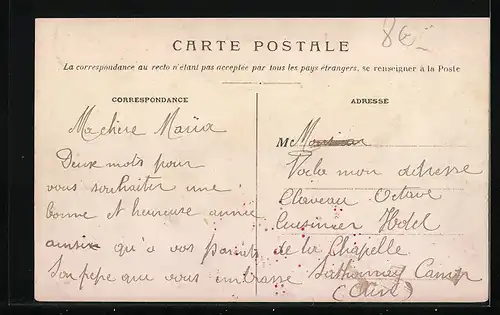 86
CARTE POSTALE
La correspondance au recto n'étant pas acceptée par tous les pays étrangers, se renseigner à la Poste
CORRESPONDANCE
Ma chère Maria
Deux mots pour
vous souhaiter une
bonne et heureuse année
ainsi qu'a vos parents
Son pepe que vous embrasse
ADRESSE
M
Voila mon adresse
Claveau Octave
Cuisinier Hotel
de la Chapelle
Sathonnay Camp
(Ain)